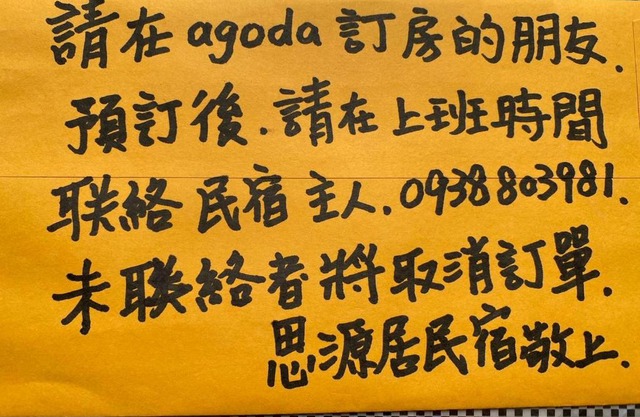 請在agoda訂房的朋友.
預訂後.請在上班時間
聯絡民宿主人.0938803981.
未聯絡者將取消訂單.
思源居民宿敬上.